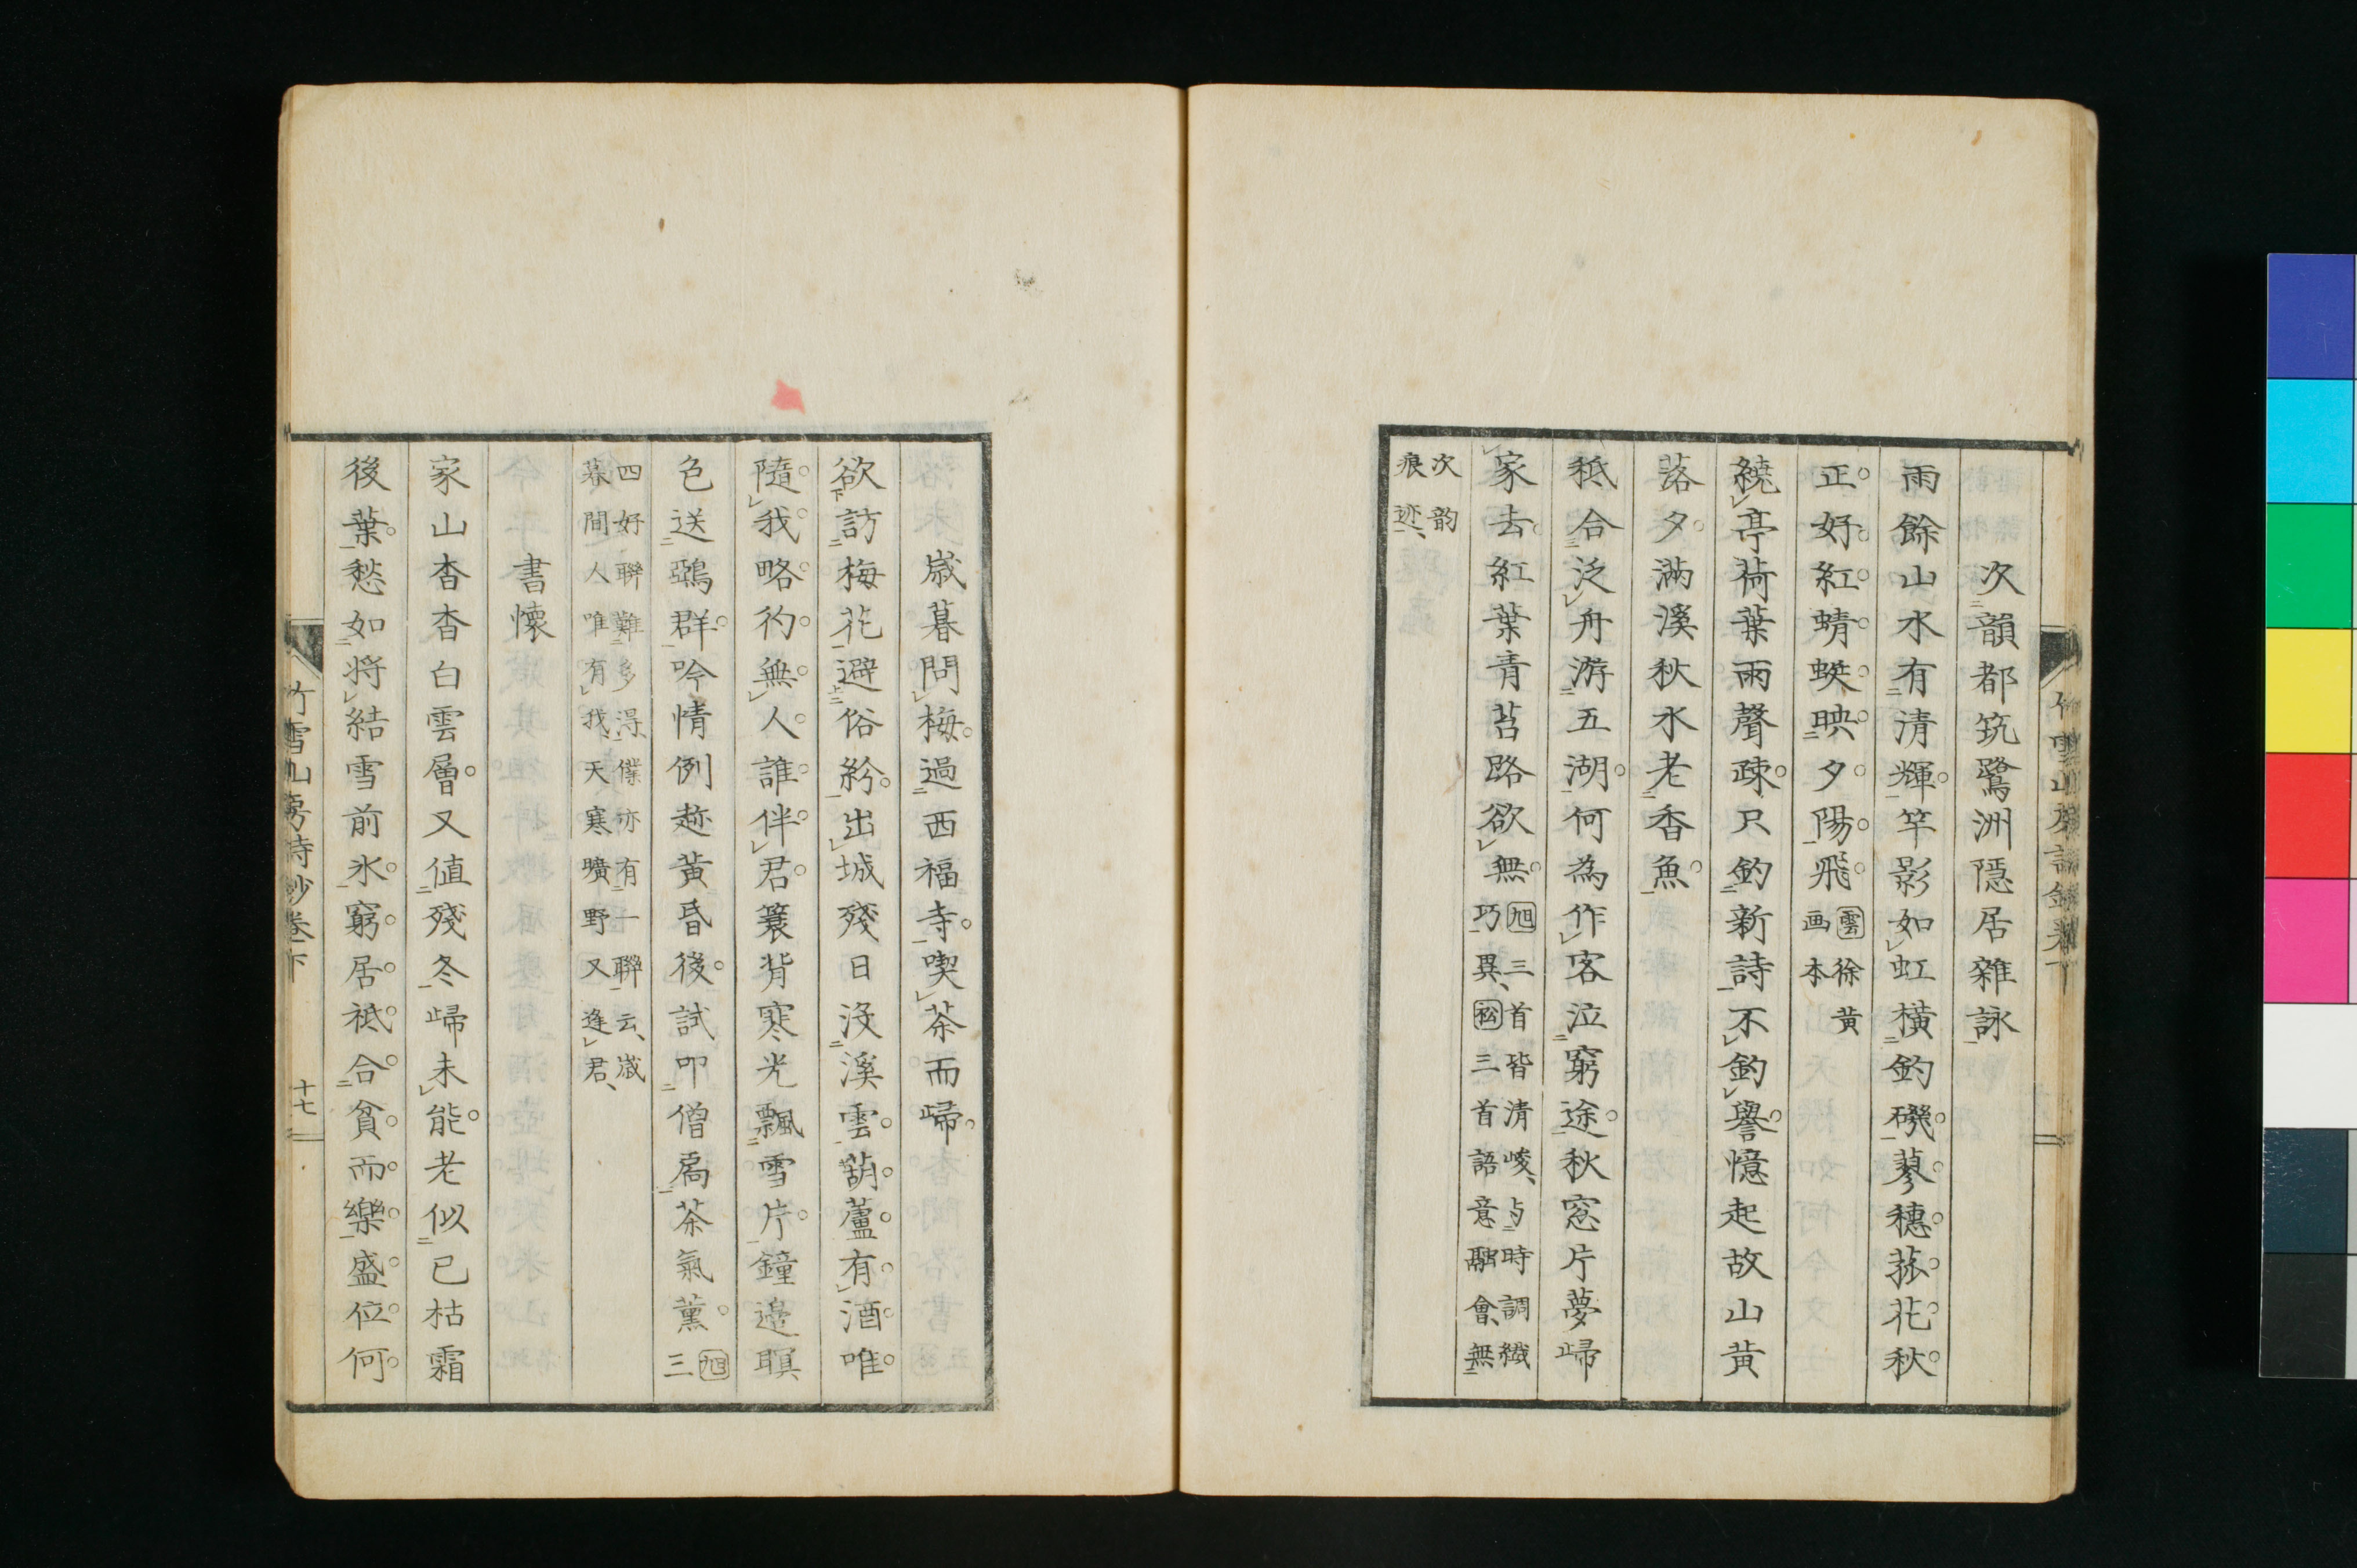 次韻都筑鷺洲隱居雜詠
雨餘山水有清輝竿影如虹橫釣磯蓼穗蓀花秋
正好紅蜻蜓映夕陽飛
雲徐黃
画本
繞亭荷葉雨聲疎只釣新詩不釣譽憶起故山黃
落夕滿溪秋水老香魚
秪合泛舟游五湖何為作客泣窮途秋窓片夢歸
家去紅葉青苔路欲無
旭三首皆清峻、与時調纖
巧異、松三首語意融會、無
次韵
痕迹、
歲暮問梅過西福寺喫茶而歸
欲訪梅花避俗紛出城殘日沒溪雲葫蘆有酒唯
隨我略彴無人誰伴君簑背寒光飄雪片鐘邊暝
色送鴉群吟情例趁黃昏後試叩僧扃茶氣薰
旭
三
四好聯難多得、僕亦有一聯云、歲
暮間人唯有我、天寒曠野又逢君、
書懷
家山杳杳白雲層又值殘冬歸未能老似已枯霜
後葉愁如將結雪前氷窮居秪合貧而樂盛位何
竹雪山房詩鈔卷下
十七